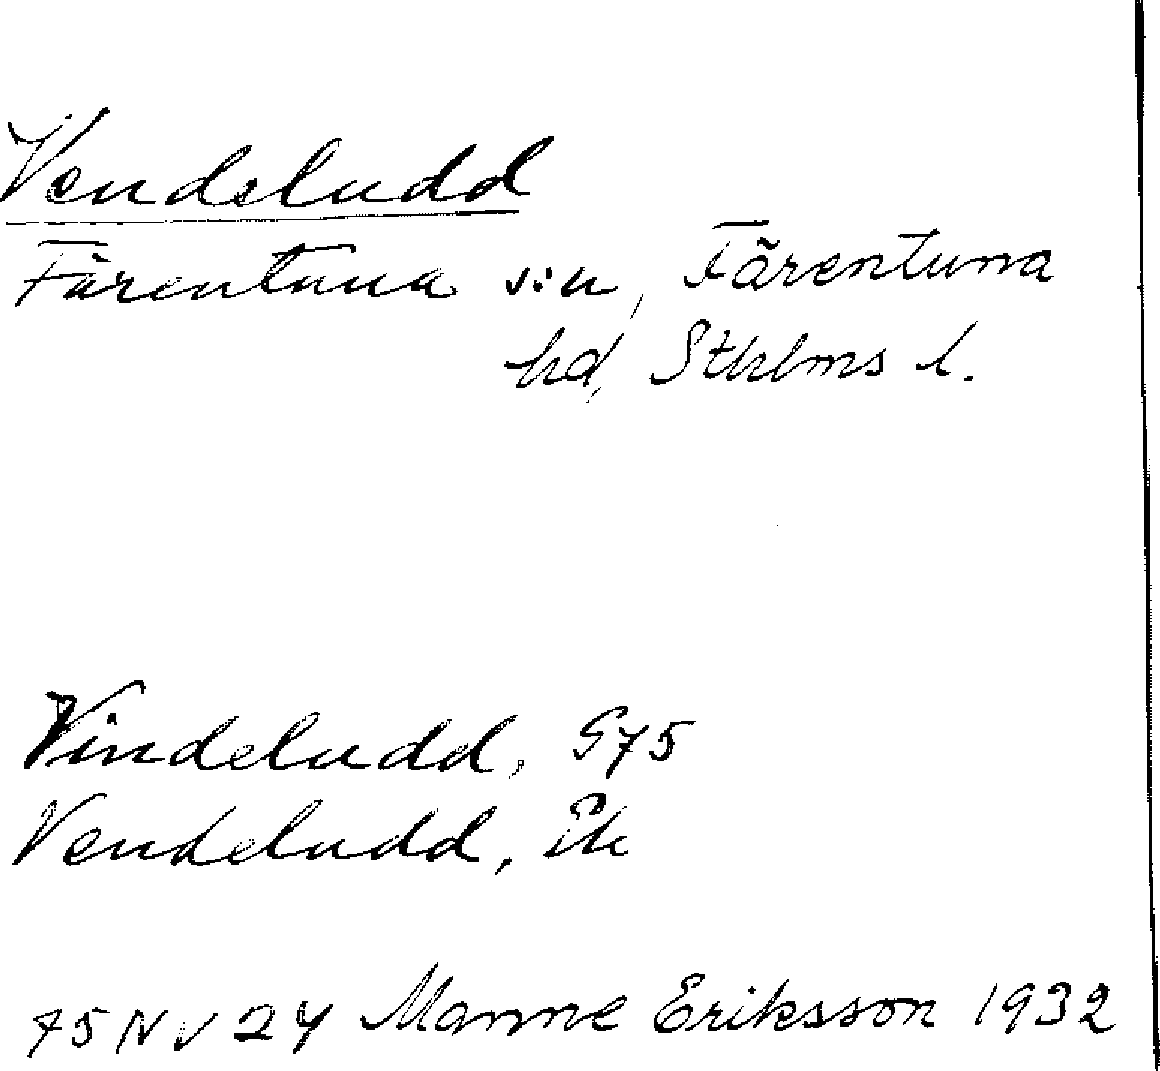 Vendeludd
Färentuna s:n, Färentuna
hd, Sthlms l.
Vindeludd, G75
Vendeludd, Ek
75 NV 24 Manne Eriksson 1932